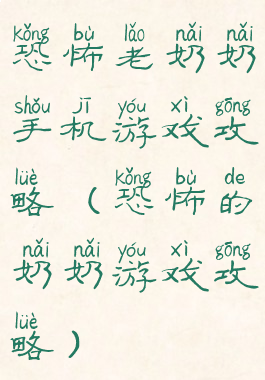 kǒng bù lǎo nǎi nǎi
恐怖老奶奶
shǒu jī yóu xì gōng
手机游戏攻
lüè kǒng bù de
略（恐怖的
nǎi nǎi yóu xì gōng
奶奶游戏攻
lüè
略）